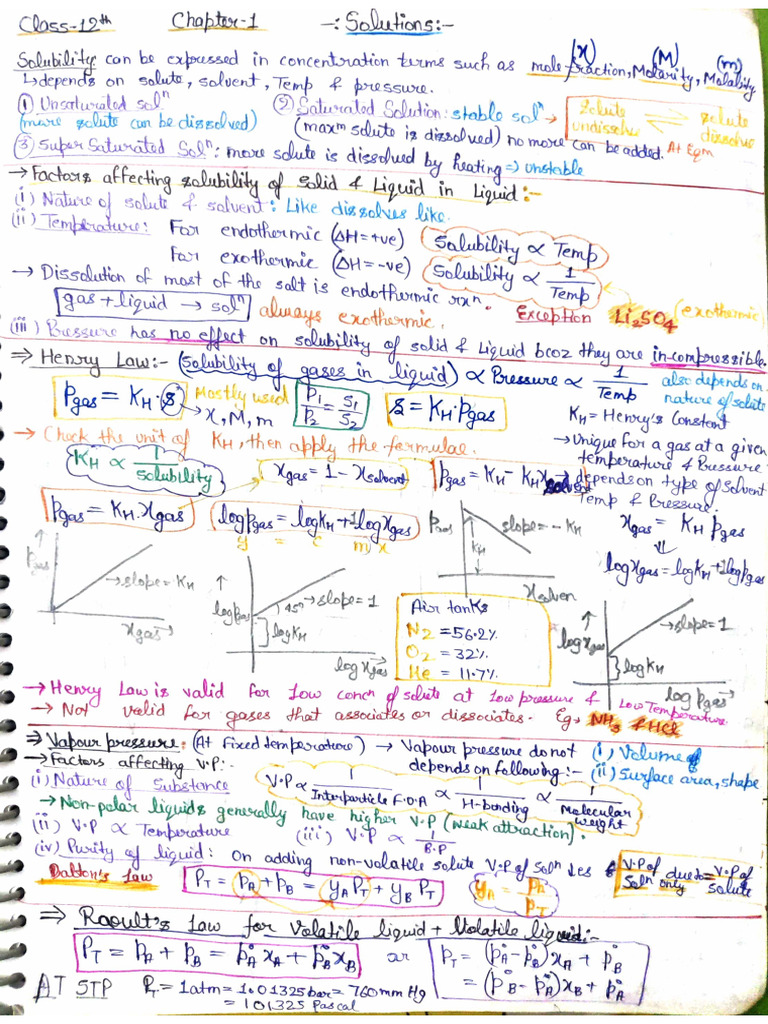 Class-12th Chapter-1 -: Solutions:-
Solubility can be expressed in concentration terms such as mole fraction, Molarity, Molality
(x) (M) (m)
↳depends on solute, solvent, Temp & pressure.
① Unsaturated solⁿ
(more solute can be dissolved)
② Saturated Solution: stable solⁿ →
(maxᵐ solute is dissolved) no more can be added.
Solute undissolve ⇌ solute dissolve
At Eqm
③ Super Saturated Solⁿ: more solute is dissolved by heating ⇒ unstable
→ Factors affecting solubility of Solid & Liquid in Liquid:-
(i) Nature of solute & solvent: Like dissolves like.
(ii) Temperature: For endothermic (ΔH=+ve) Solubility ∝ Temp
For exothermic (ΔH=-ve) Solubility ∝ 1/Temp
→ Dissolution of most of the salt is endothermic rxⁿ.
gas + liquid → solⁿ always exothermic.
Exception Li₂SO₄ (exothermic)
(iii) Pressure has no effect on solubility of solid & Liquid bcoz they are in-compressible.
⇒ Henry Law:- (Solubility of gases in liquid) ∝ Pressure ∝ 1/Temp
also depends on nature of solute
Pgas = KH.S Mostly used P₁/P₂ = S₁/S₂ S = KH.Pgas
→ x, M, m
KH = Henry's Constant
→ Check the unit of KH, then apply the formulae.
→ Unique for a gas at a given temperature & Pressure
→ depends on type of solvent Temp & Pressure.
KH ∝ 1/solubility
xgas = 1 - xsolvent
Pgas = KH - KH xsolvent
Pgas = KH.xgas
log Pgas = log KH + 1 log xgas
y = c m x
xgas = KH Pgas
⇓
log xgas = log KH + 1 log Pgas
Pgas → slope = KH
xgas →
log Pgas 45° → slope = 1
log KH
log xgas
Pgas slope = - KH
KH
xsolven
Air tanKs
N₂ = 56.2%
O₂ = 32%
He = 11.7%
log xgas → slope = 1
log KH
log Pgas →
→ Henry Law is valid for low concⁿ of solute at low pressure & Low Temperature
→ Not valid for gases that associates or dissociates. Eg → NH₃ & HCl
⇒ Vapour pressure: (At fixed temperature) → Vapour pressure do not depends on following:- (i) Volume of
(ii) Surface area, shape
→ Factors affecting V.P:-
(i) Nature of Substance V.P ∝ 1/Interparticle F.O.A ∝ 1/H-bonding ∝ 1/Molecular weight
→ Non-polar liquids generally have higher V.P (weak attraction).
(ii) V.P ∝ Temperature (iii) V.P ∝ 1/B.P
(iv) Purity of liquid: On adding non-volatile solute V.P of solⁿ ↓es
V.P of solⁿ due to only = V.P of solute
Dalton's Law PT = PA + PB = yA PT + yB PT yA = PA/PT
⇒ Raoult's Law for Volatile liquid + Volatile liquid:-
PT = PA + PB = P°A xA + P°B xB or PT = (P°A - P°B) xA + P°B
= (P°B - P°A) xB + P°A
AT STP Pt = 1 atm = 1.01325 bar = 760 mm Hg
= 101325 Pascal